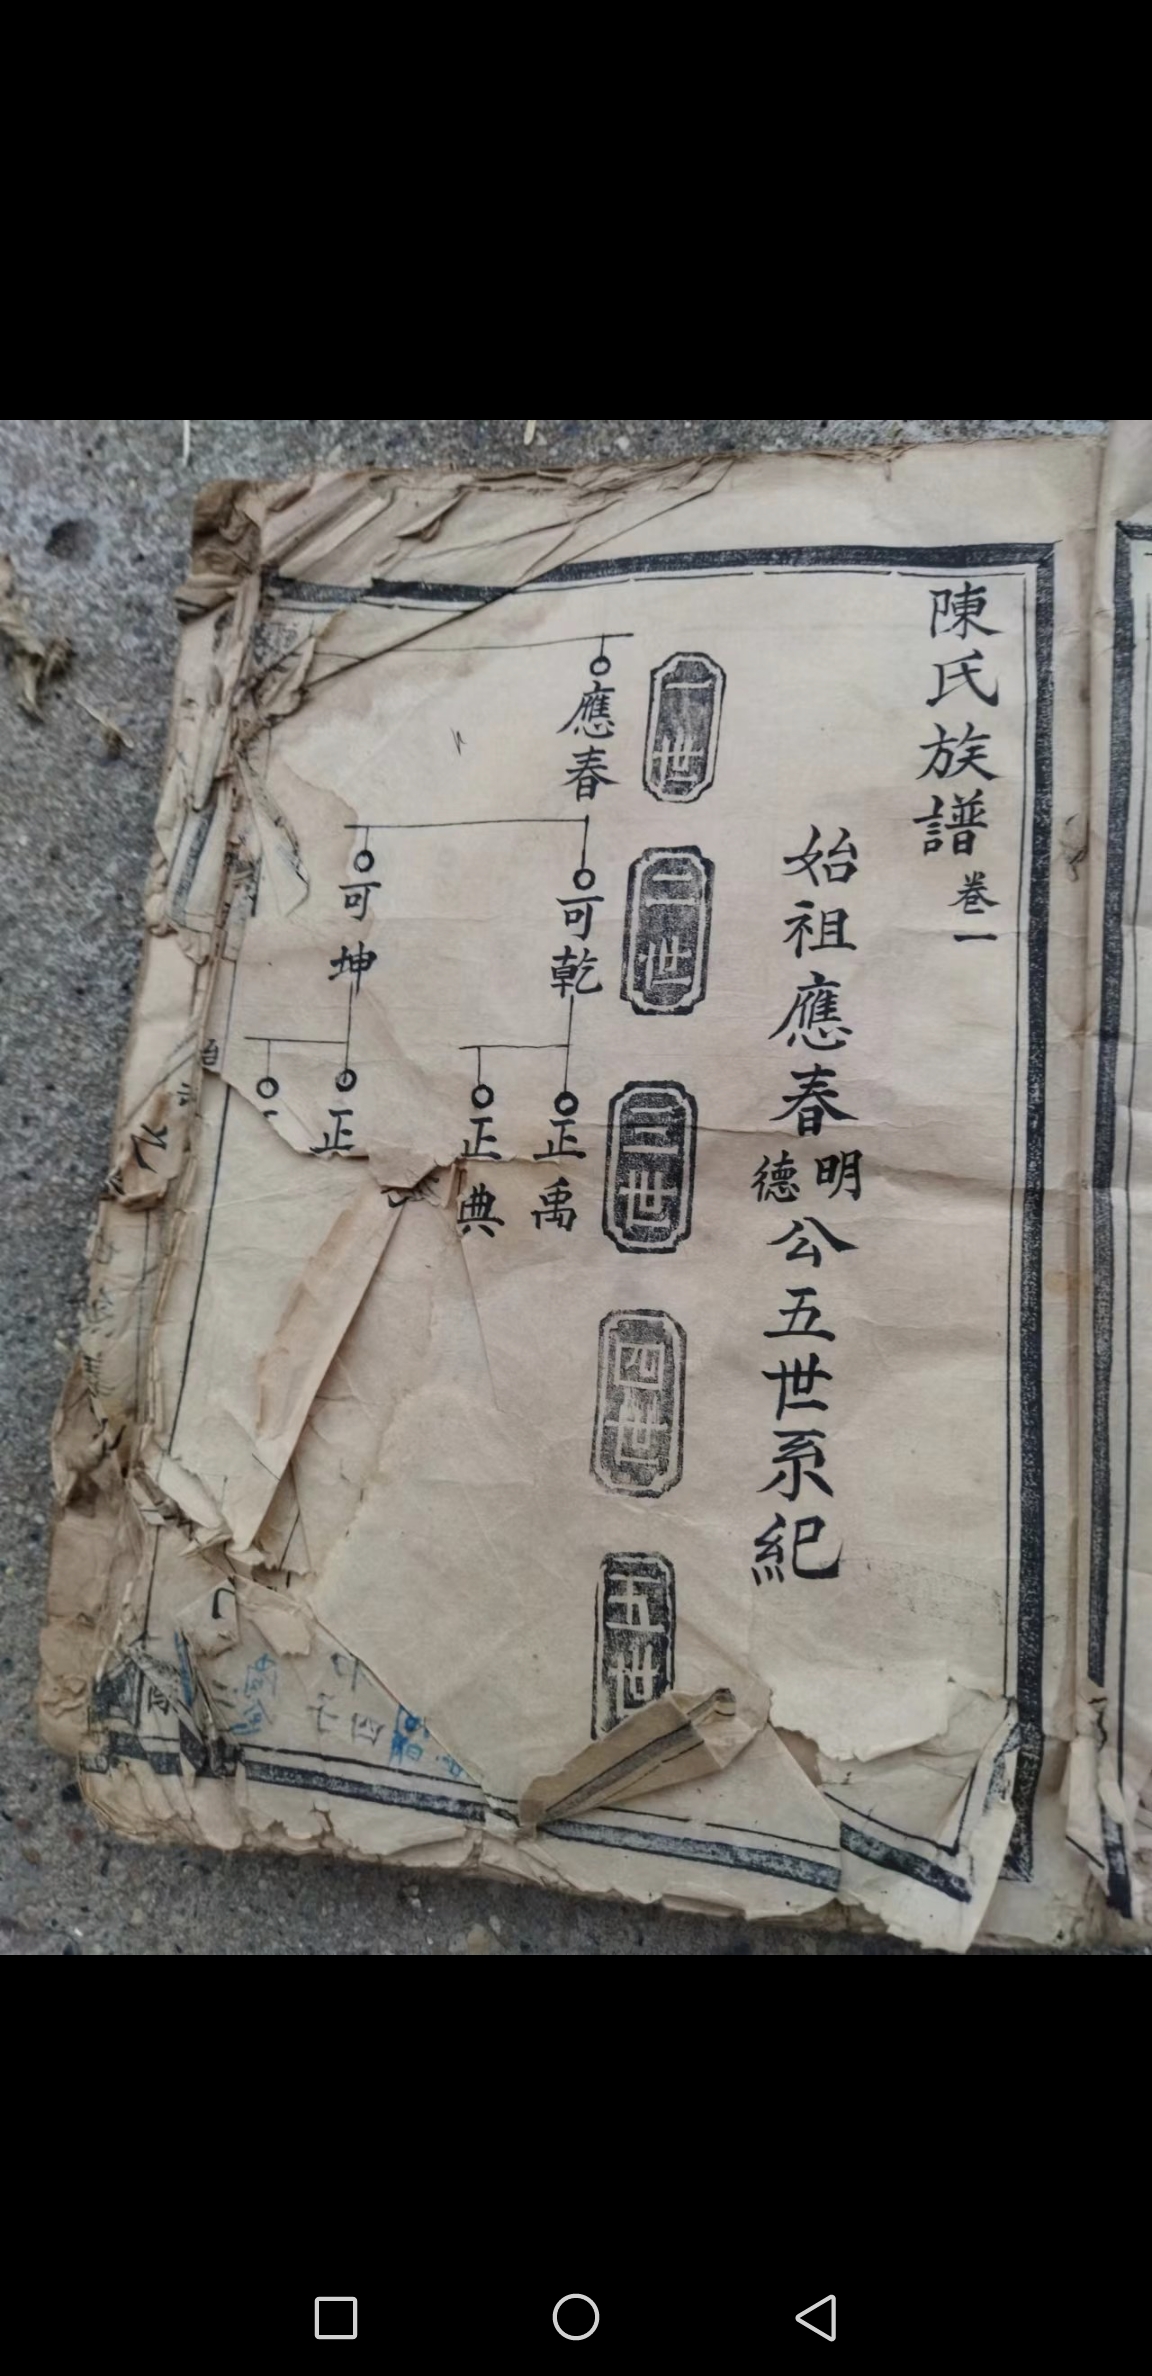 陳氏族譜 卷一
始祖應春明德公五世系紀
一世
二世
三世
四世
五世
應春
可乾
可坤
正禹
正典
正
四子